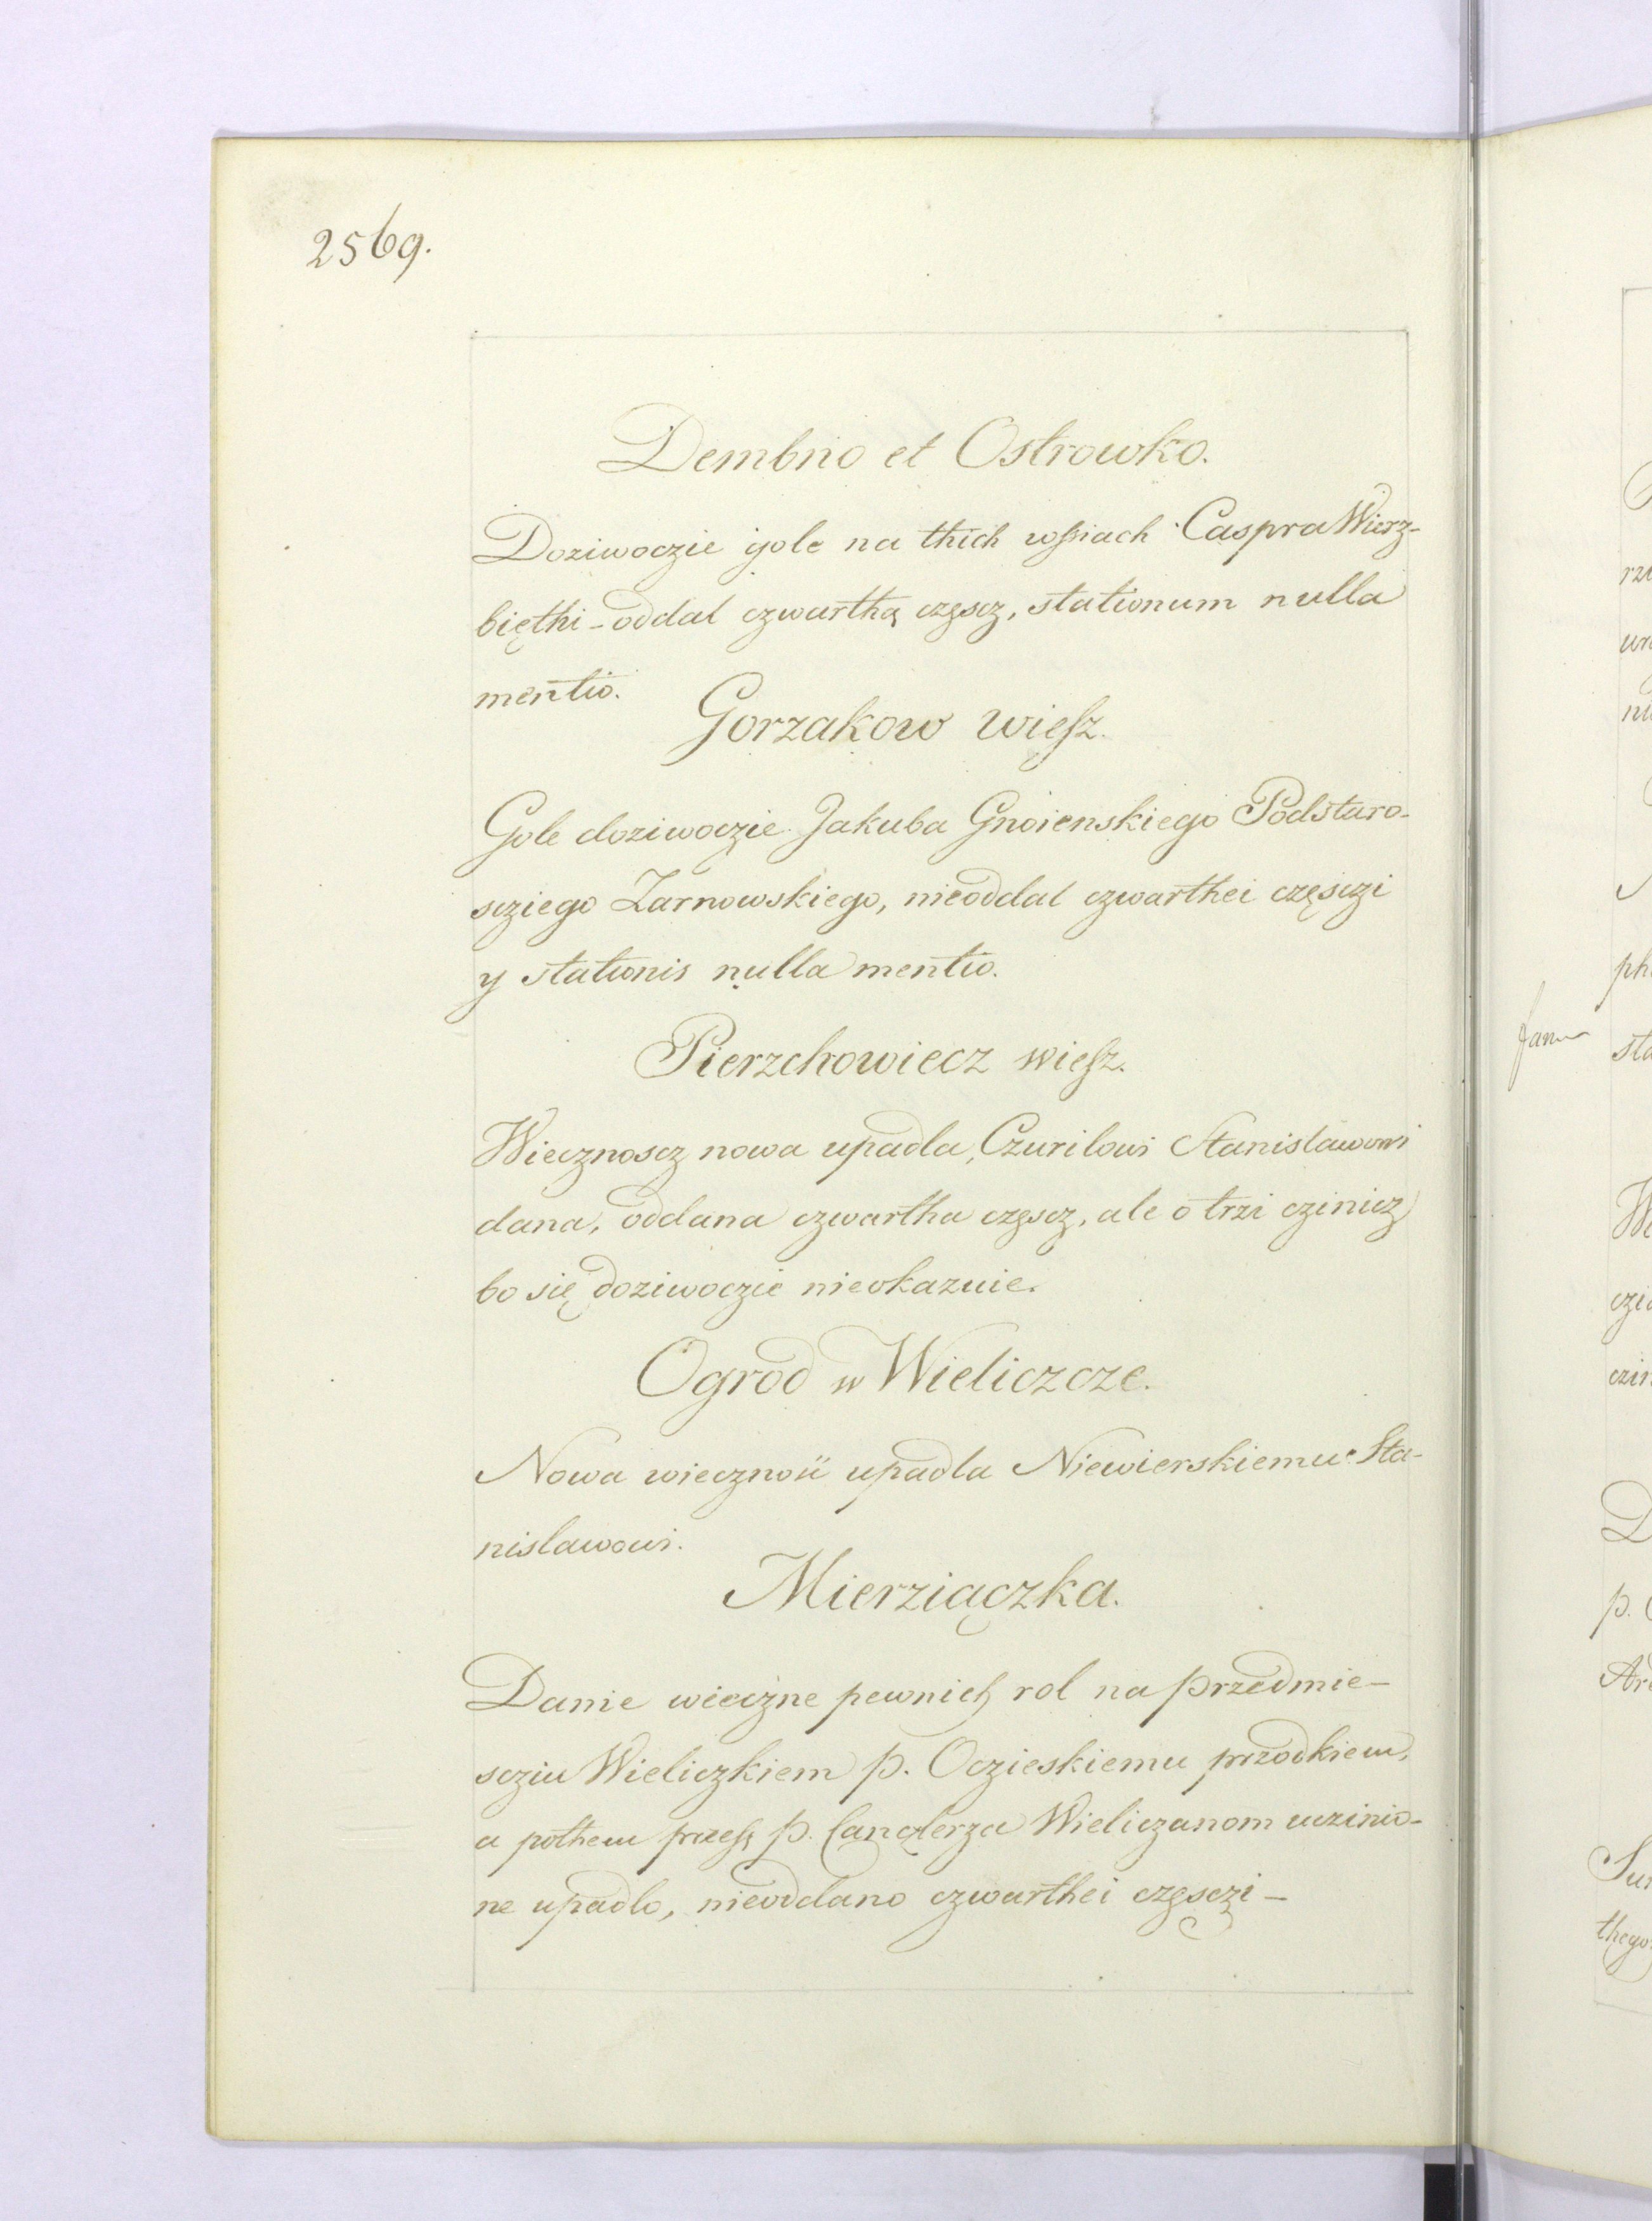 2569.
Dembno et Ostrowko.
Doziwoczie gole na thich wßiach Caspra Wierz-
bięthi - oddal czwarthą częscz, stationum nulla
mentio.
Gorzakow wiesz.
Gole doziwoczie Jakuba Gnoienskiego Podstaro-
scziego Zarnowskiego, nieoddal czwarthei częsczi
y stationis nulla mentio.
Pierzchowiecz wiesz.
Wiecznoscz nowa upadla, Czurilowi Stanislawowi
dana, oddana czwartha częscz, ale o trzi czinicz
bo się doziwoczie nieokazuie.
Ogrod w Wieliczcze.
Nowa wiecznosć upadla Niewierskiemu Sta-
nislawowi.
Mierziączka.
Danie wieczne pewnich rol na przedmie-
scziu Wieliczkiem p. Oczieskiemu przodkiem,
a pothem przesz p. Canclerza Wieliczanom uczinio-
ne upadlo, nieoddano czwarthei częsczi -